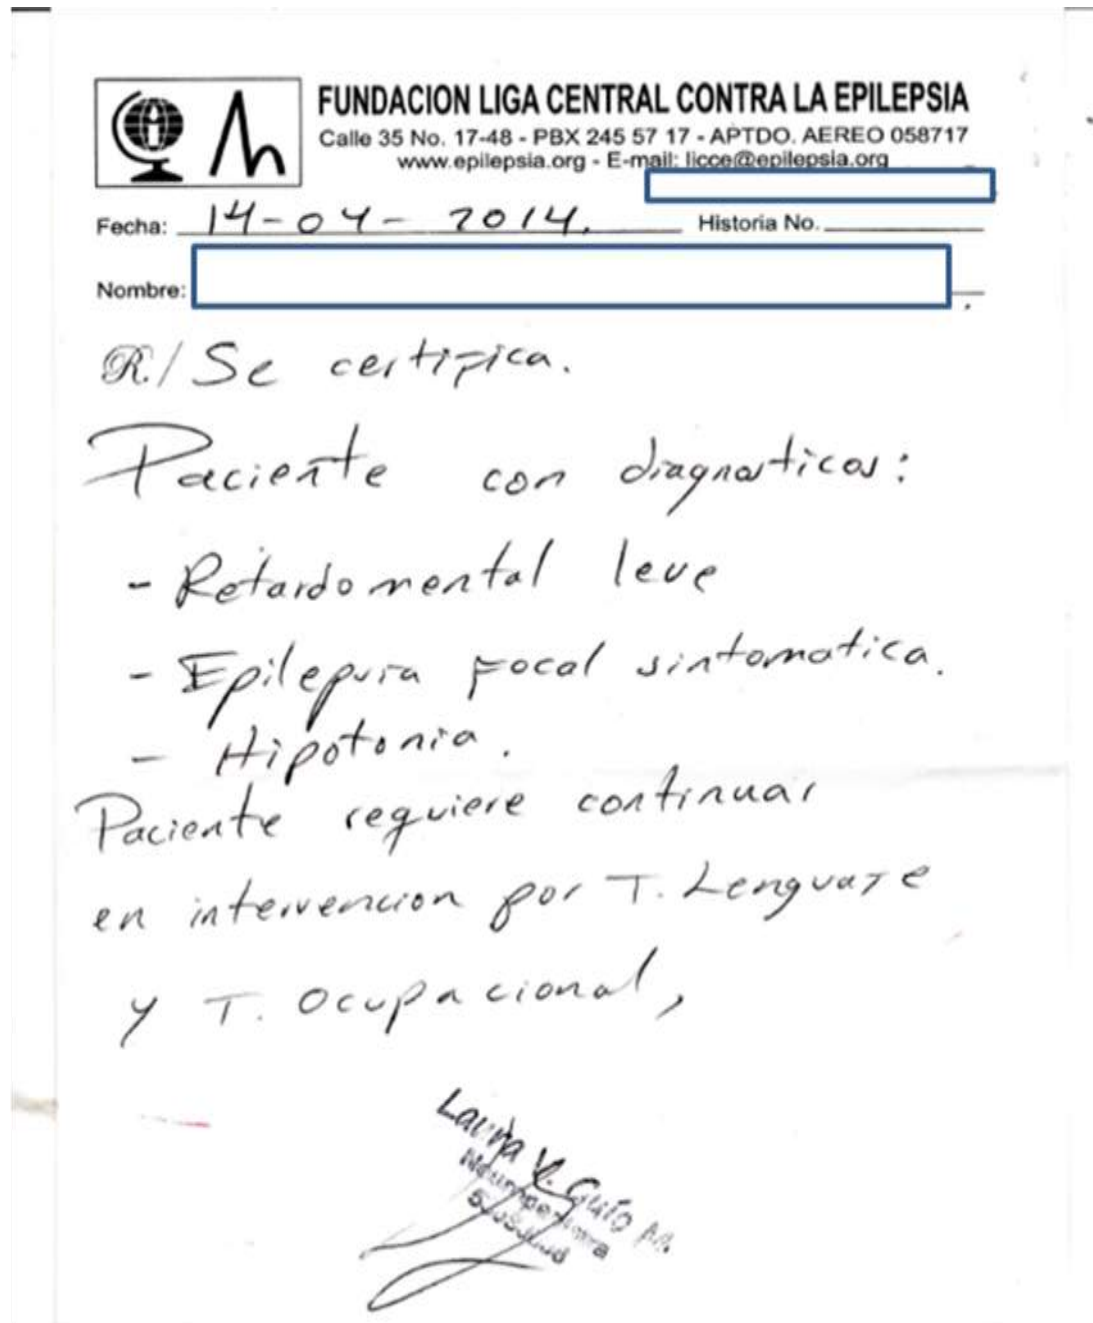 FUNDACION LIGA CENTRAL CONTRA LA EPILEPSIA
Calle 35 No. 17-48 - PBX 245 57 17 - APTDO. AEREO 058717
www.epilepsia.org - E-mail: licce@epilepsia.org
Fecha: 14-04-2014. Historia No.
Nombre:
R./ Se certifica.
Paciente con diagnosticos:
- Retardo mental leve
- Epilepsia focal sintomatica.
- Hipotonia.
Paciente requiere continuar
en intervencion por T. Lenguaje
y T. Ocupacional,
Laura V. Guío M.
Neuropediatra